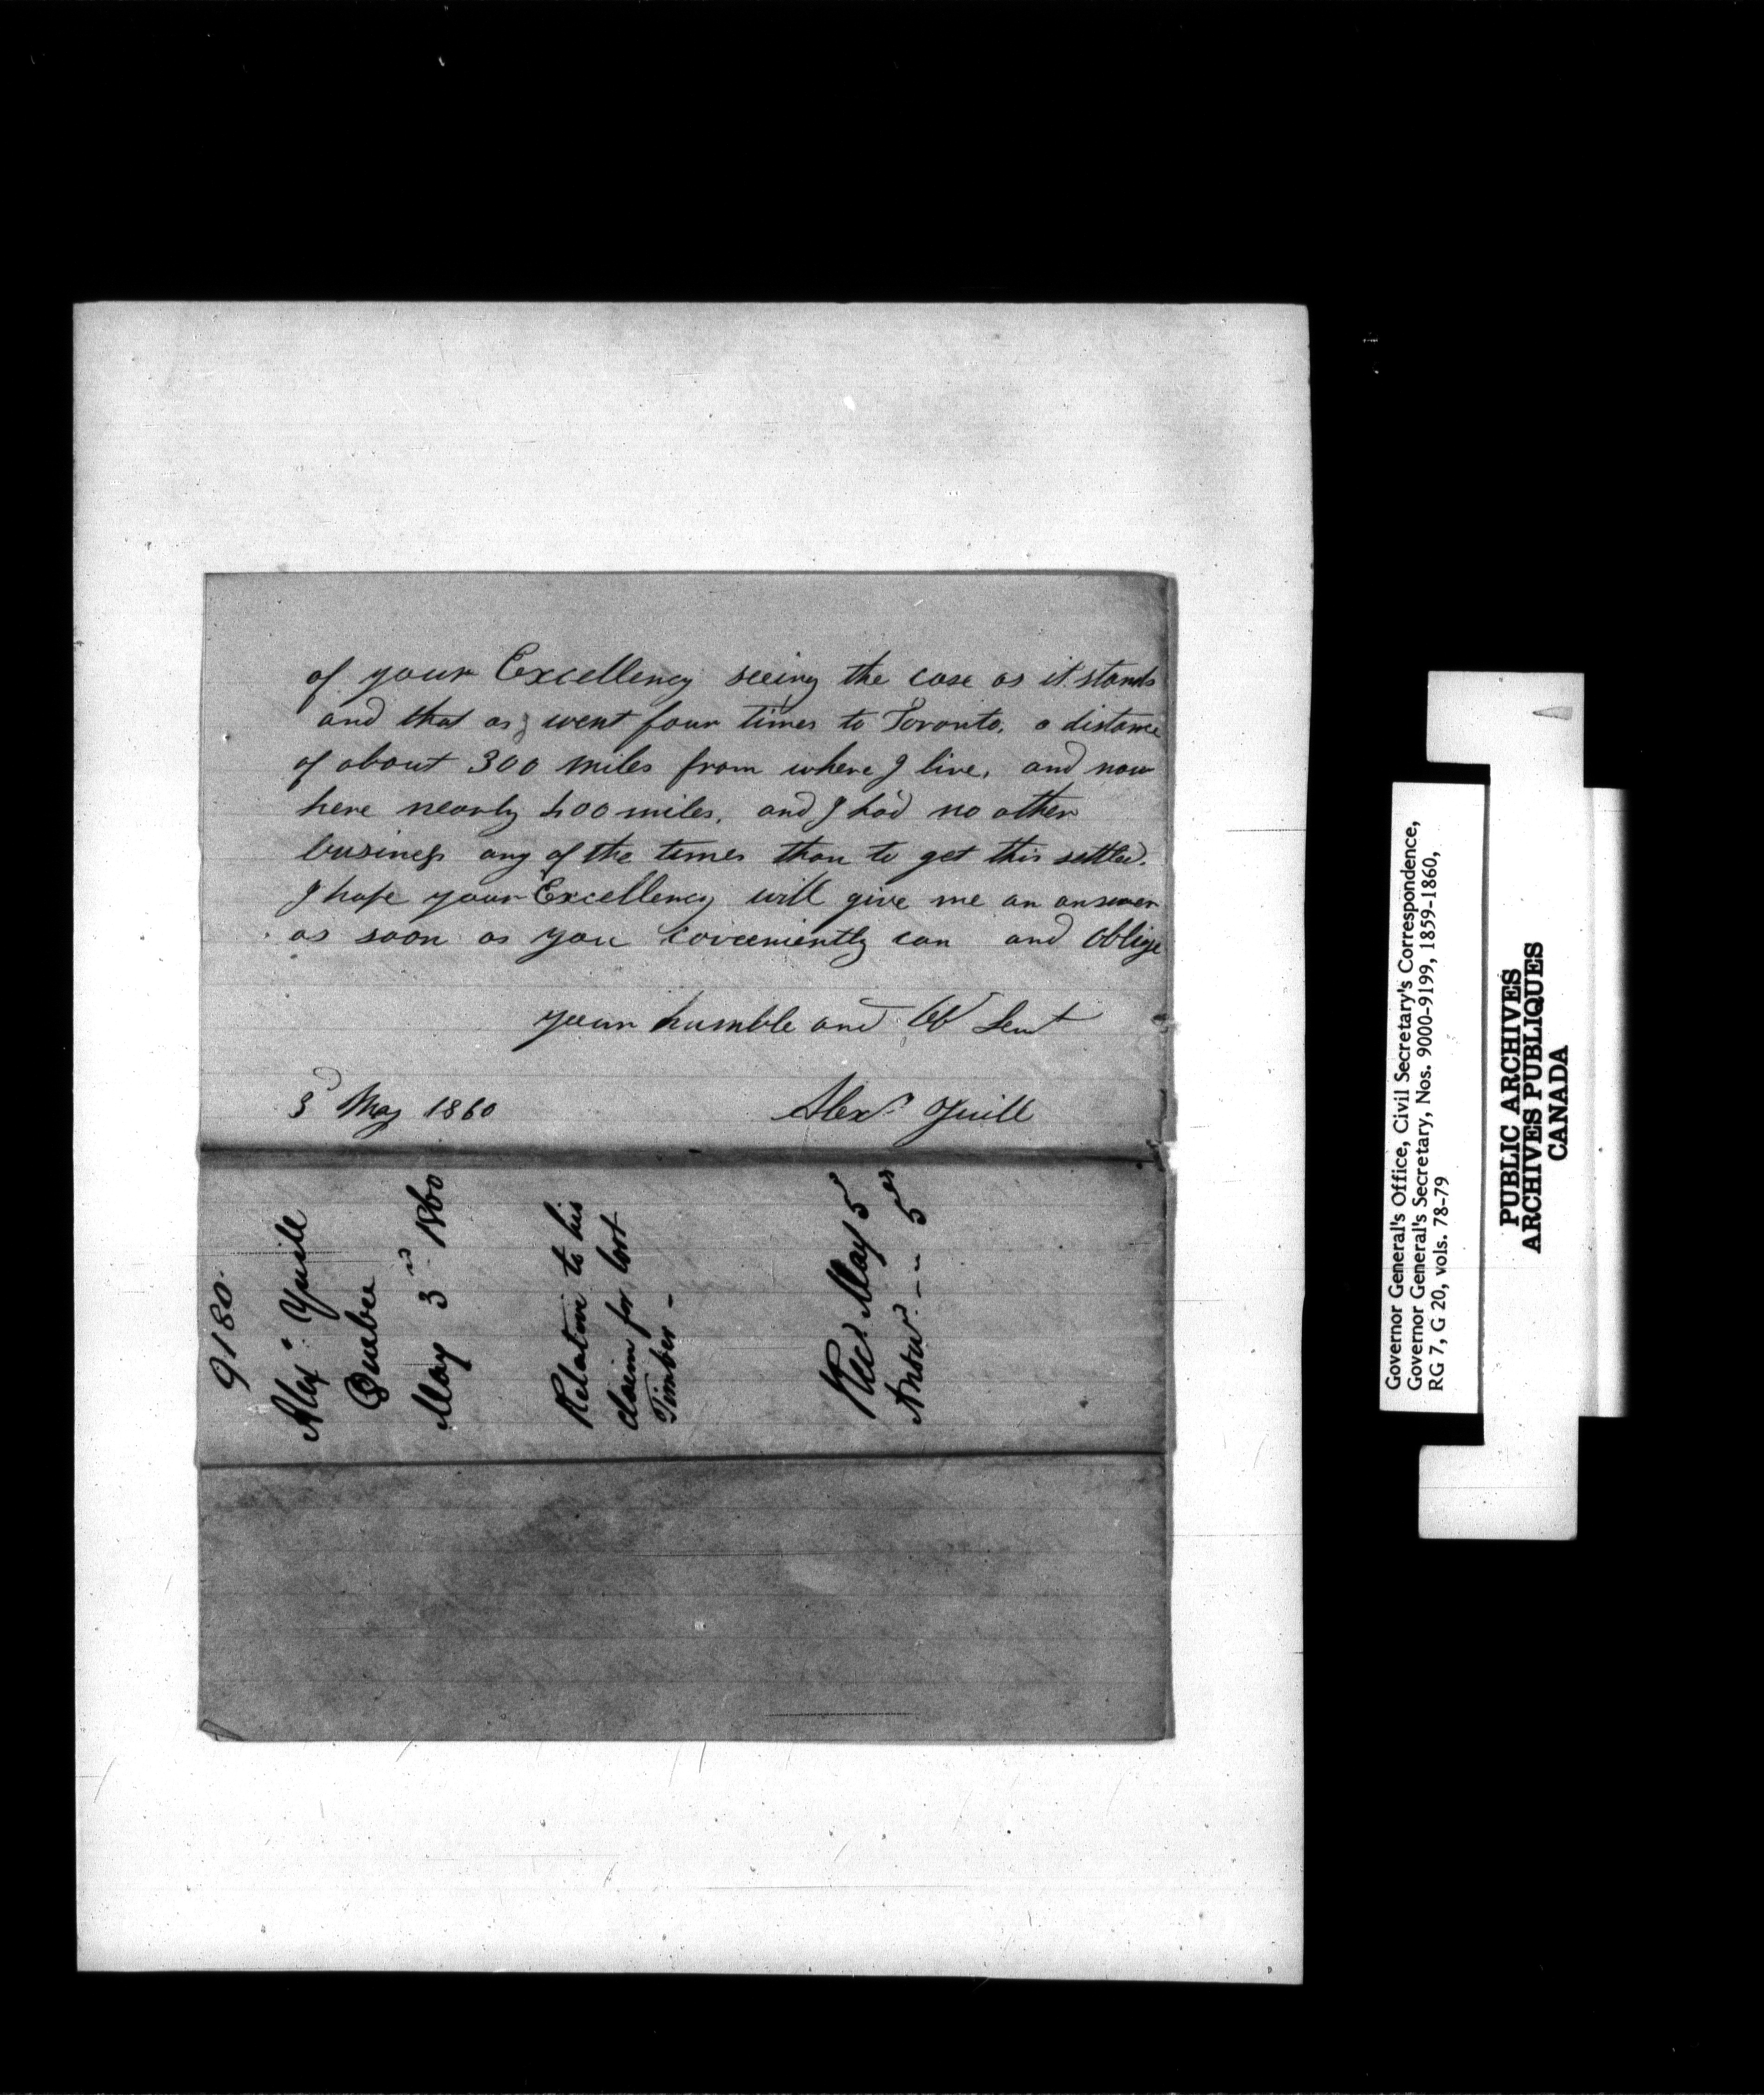 of your Excellency seeing the case as it stands
and that as I went four times to Toronto, a distance
of about 300 miles from where I live, and now
here nearly 400 miles, and I had no other
business any of the times than to get this settled.
I hope your Excellency will give me an answer
as soon as you conveniently can and oblige
your humble and Ob Sevt
3d May 1860
Alexr Yuill
9180
Alexr Yuill
Quebec
May 3rd 1860
Relative to his
claim for lost
Timber -
Recd May 5
Answd - " 5
Governor General's Office, Civil Secretary's Correspondence,
Governor General's Secretary, Nos. 9000-9199, 1859-1860,
RG 7, G 20, vols. 78-79
PUBLIC ARCHIVES
ARCHIVES PUBLIQUES
CANADA